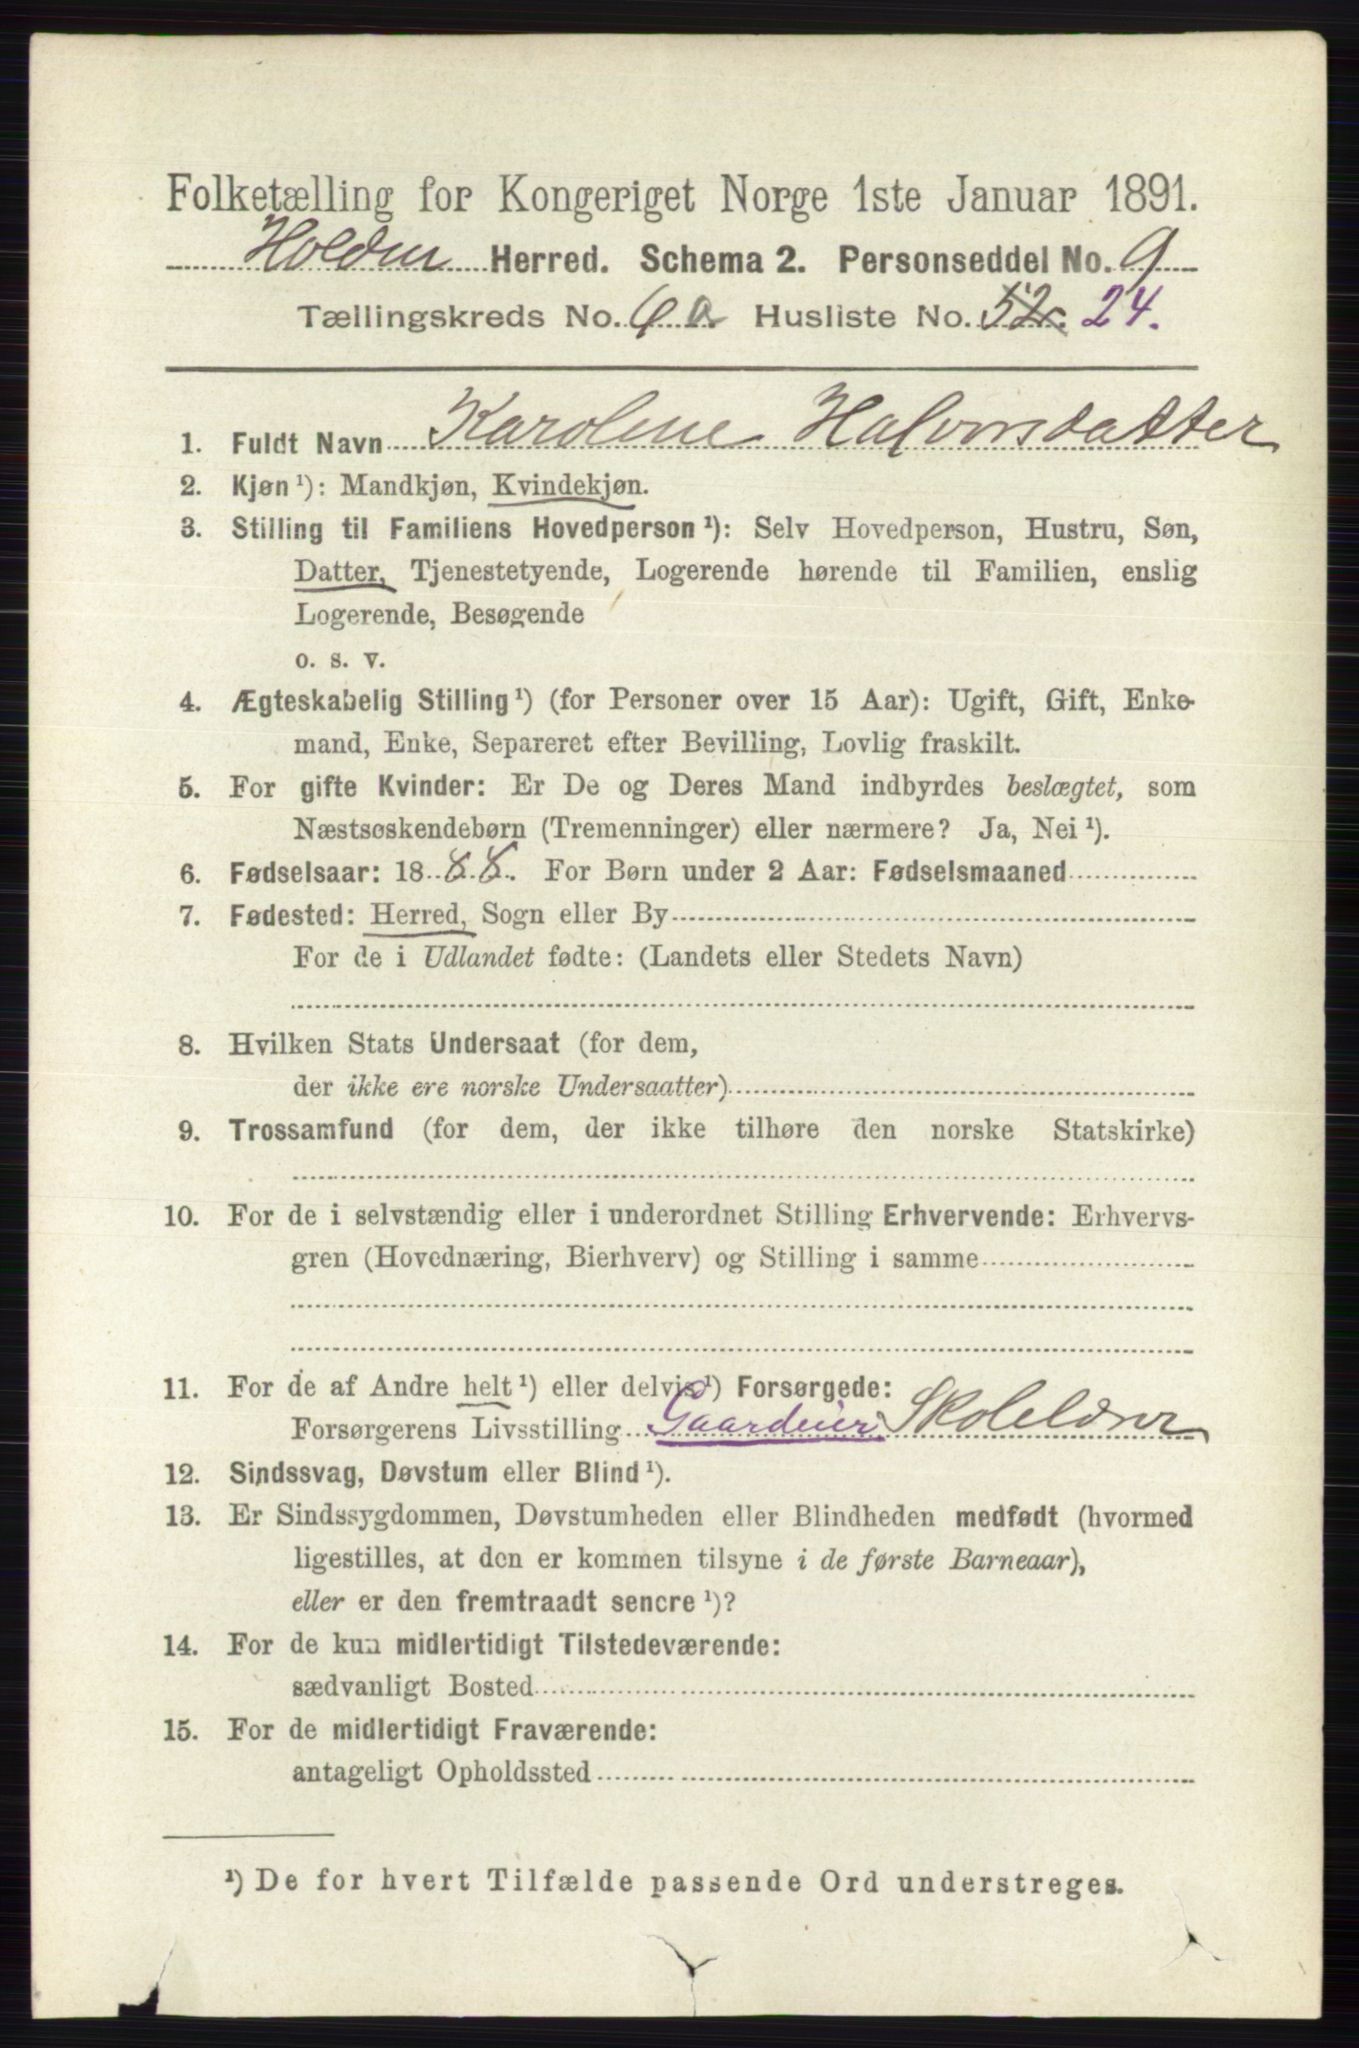 Folketælling for Kongeriget Norge 1ste Januar 1891.
Holden Herred. Schema 2. Personseddel No. 9
Tællingskreds No. 6 a Husliste No. 52. 24.
1. Fuldt Navn Karoline Halvorsdatter
2. Kjøn ¹): Mandkjøn, Kvindekjøn.
3. Stilling til Familiens Hovedperson ¹): Selv Hovedperson, Hustru, Søn,
Datter, Tjenestetyende, Logerende hørende til Familien, enslig
Logerende, Besøgende
o. s. v.
4. Ægteskabelig Stilling ¹) (for Personer over 15 Aar): Ugift, Gift, Enke-
mand, Enke, Separeret efter Bevilling, Lovlig fraskilt.
5. For gifte Kvinder: Er De og Deres Mand indbyrdes beslægtet, som
Næstsøskendebørn (Tremenninger) eller nærmere? Ja, Nei ¹).
6. Fødselsaar: 1888. For Børn under 2 Aar: Fødselsmaaned
7. Fødested: Herred, Sogn eller By
For de i Udlandet fødte: (Landets eller Stedets Navn)
8. Hvilken Stats Undersaat (for dem,
der ikke ere norske Undersaatter)
9. Trossamfund (for dem, der ikke tilhøre den norske Statskirke)
10. For de i selvstændig eller i underordnet Stilling Erhvervende: Erhvervs-
gren (Hovednæring, Bierhverv) og Stilling i samme
11. For de af Andre helt ¹) eller delvis ¹) Forsørgede:
Forsørgerens Livsstilling Gaardeier Skolelærer
12. Sindssvag, Døvstum eller Blind ¹).
13. Er Sindssygdommen, Døvstumheden eller Blindheden medfødt (hvormed
ligestilles, at den er kommen tilsyne i de første Barneaar),
eller er den fremtraadt senere ¹)?
14. For de kun midlertidigt Tilstedeværende:
sædvanligt Bosted
15. For de midlertidigt Fraværende:
antageligt Opholdssted
¹) De for hvert Tilfælde passende Ord understreges.